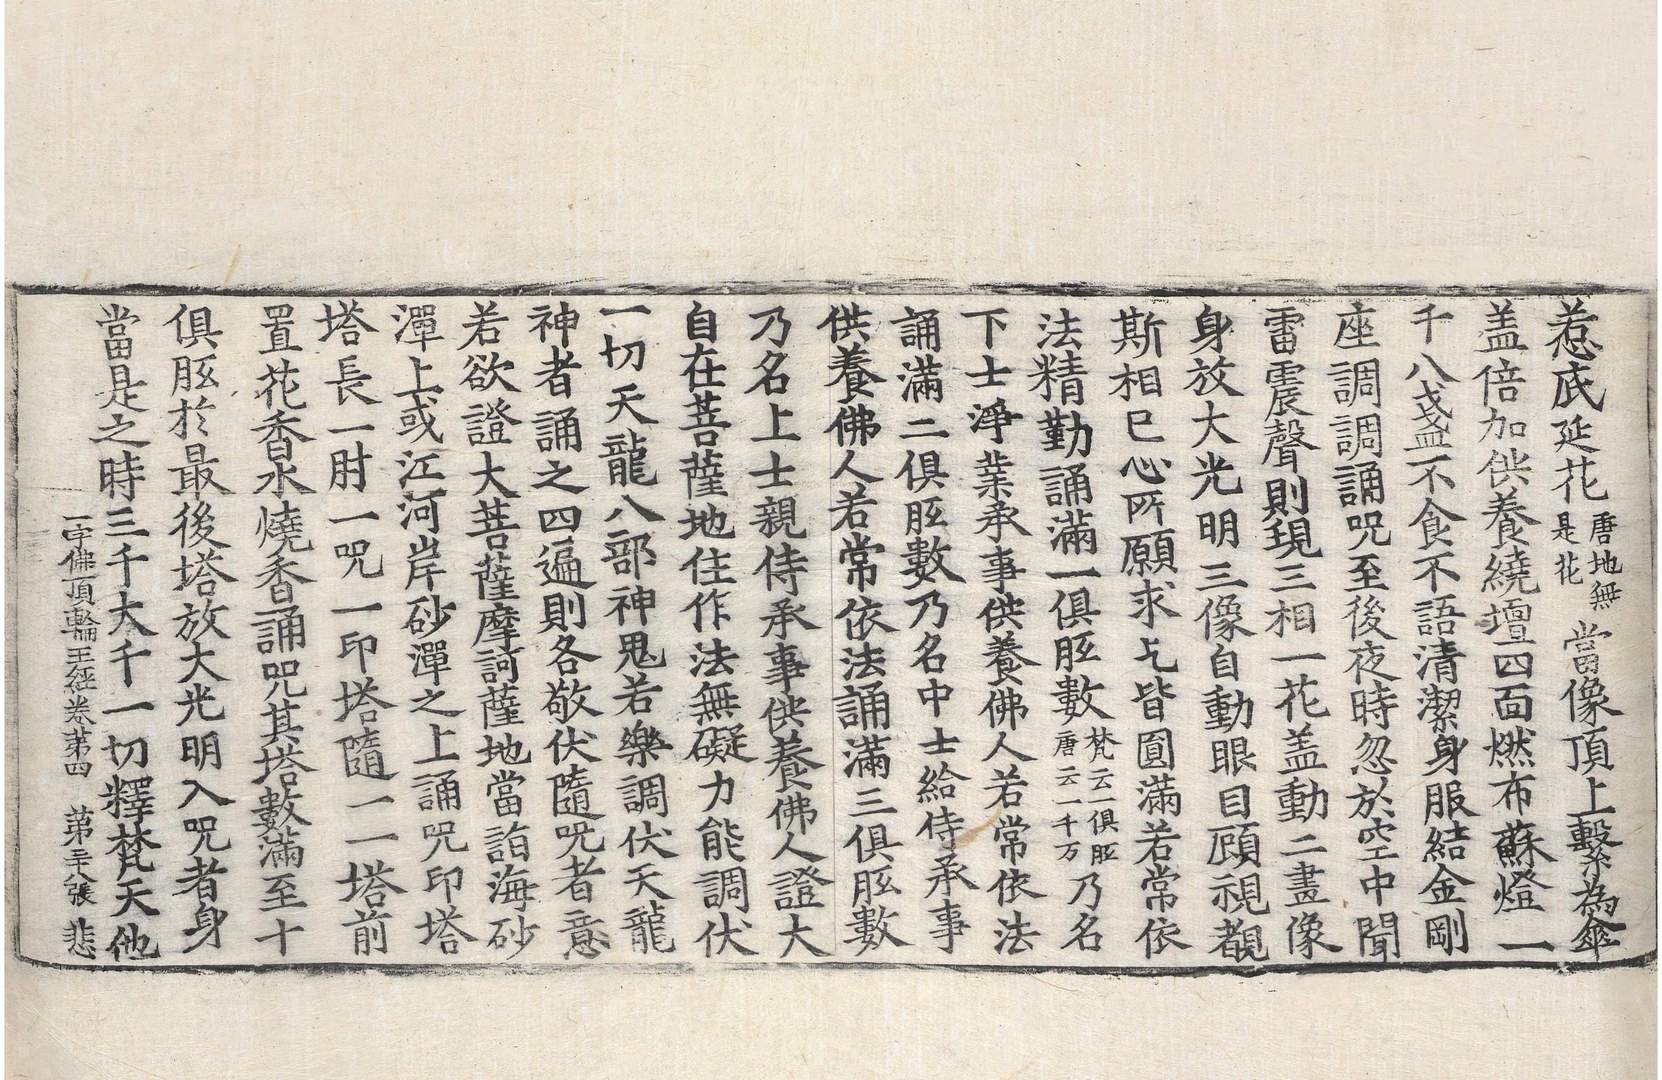 惹底延花唐地無是花當像頂上繫為傘
盖倍加供養繞壇四面燃布蘇燈一
千八盞不食不語清潔身服結金剛
座調調誦咒至後夜時忽於空中聞
雷震聲則現三相一花盖動二畫像
身放大光明三像自動眼目顧視覩
斯相已心所願求乞皆圓滿若常依
法精勤誦滿一俱胝數梵云一俱胝唐云一千万乃名
下士淨業承事供養佛人若常依法
誦滿二俱胝數乃名中士給侍承事
供養佛人若常依法誦滿三俱胝數
乃名上士親侍承事供養佛人證大
自在菩薩地住作法無礙力能調伏
一切天龍八部神鬼若樂調伏天龍
神者誦之四遍則各敬伏隨咒者意
若欲證大菩薩摩訶薩地當詣海砂
潬上或江河岸砂潬之上誦咒印塔
塔長一肘一咒一印塔隨一一塔前
置花香水燒香誦咒其塔數滿至十
俱胝於最後塔放大光明入咒者身
當是之時三千大千一切釋梵天他
一字佛頂輪王經卷第四 第三十八張 悲